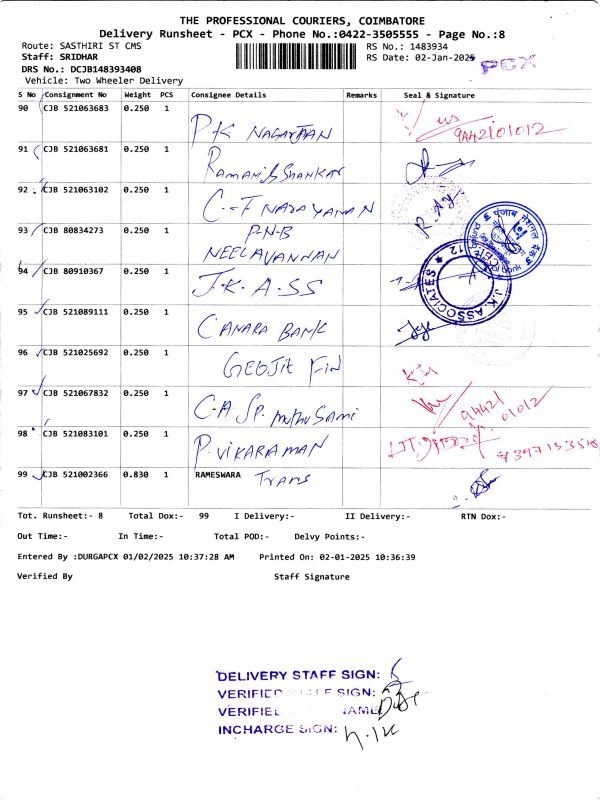 THE PROFESSIONAL COURIERS, COIMBATORE
Delivery Runsheet - PCX - Phone No.:0422-3505555 - Page No.:8
Route: SASTHIRI ST CMS RS No.: 1483934
Staff: SRIDHAR RS Date: 02-Jan-2025 PCX
DRS No.: DCJB148393408
Vehicle: Two Wheeler Delivery
S No Consignment No Weight PCS Consignee Details Remarks Seal & Signature
90 CJB 521063683 0.250 1
P.K NAGARAJAN 9442101012
91 CJB 521063681 0.250 1
RAMANI SHANKAR
92 CJB 521063102 0.250 1
C-F NARAYANAN
93 CJB 80834273 0.250 1 P-N-B
NEELAVANNAN
94 CJB 80910367 0.250 1 J.K.A.SS
J.K. ASSOCIATES
95 CJB 521089111 0.250 1
CANARA BANK
96 CJB 521025692 0.250 1
GEOJIT FIN
97 CJB 521067832 0.250 1
C.A SP. MUTHUSAMI 94421 01012
98 CJB 521083101 0.250 1
P. VIKARAMAN
99 CJB 521002366 0.830 1 RAMESWARA TRANS
Tot. Runsheet:- 8 Total Dox:- 99 I Delivery:- II Delivery:- RTN Dox:-
Out Time:- In Time:- Total POD:- Delvy Points:-
Entered By :DURGAPCX 01/02/2025 10:37:28 AM Printed On: 02-01-2025 10:36:39
Verified By Staff Signature
DELIVERY STAFF SIGN:
VERIFIED SIGN:
VERIFIED NAME:
INCHARGE SIGN: